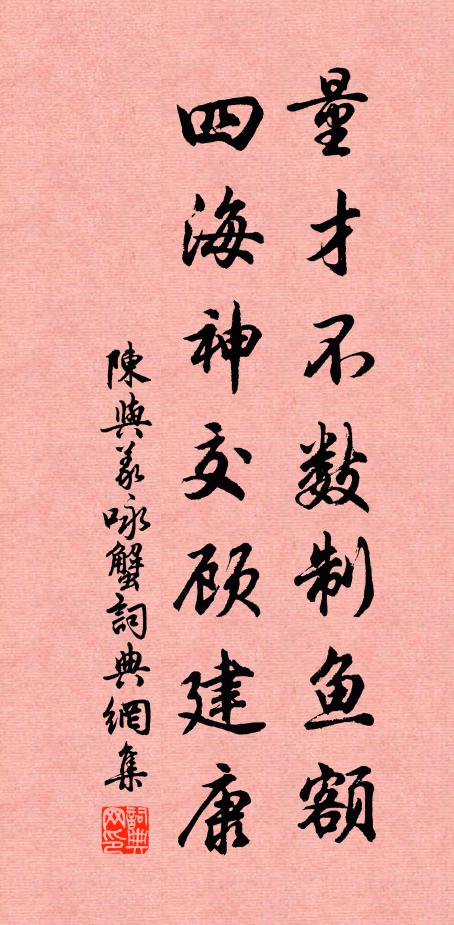 量才不数制鱼额
四海神交顾建康
陳與義咏蟹詞典網集
詞典网印